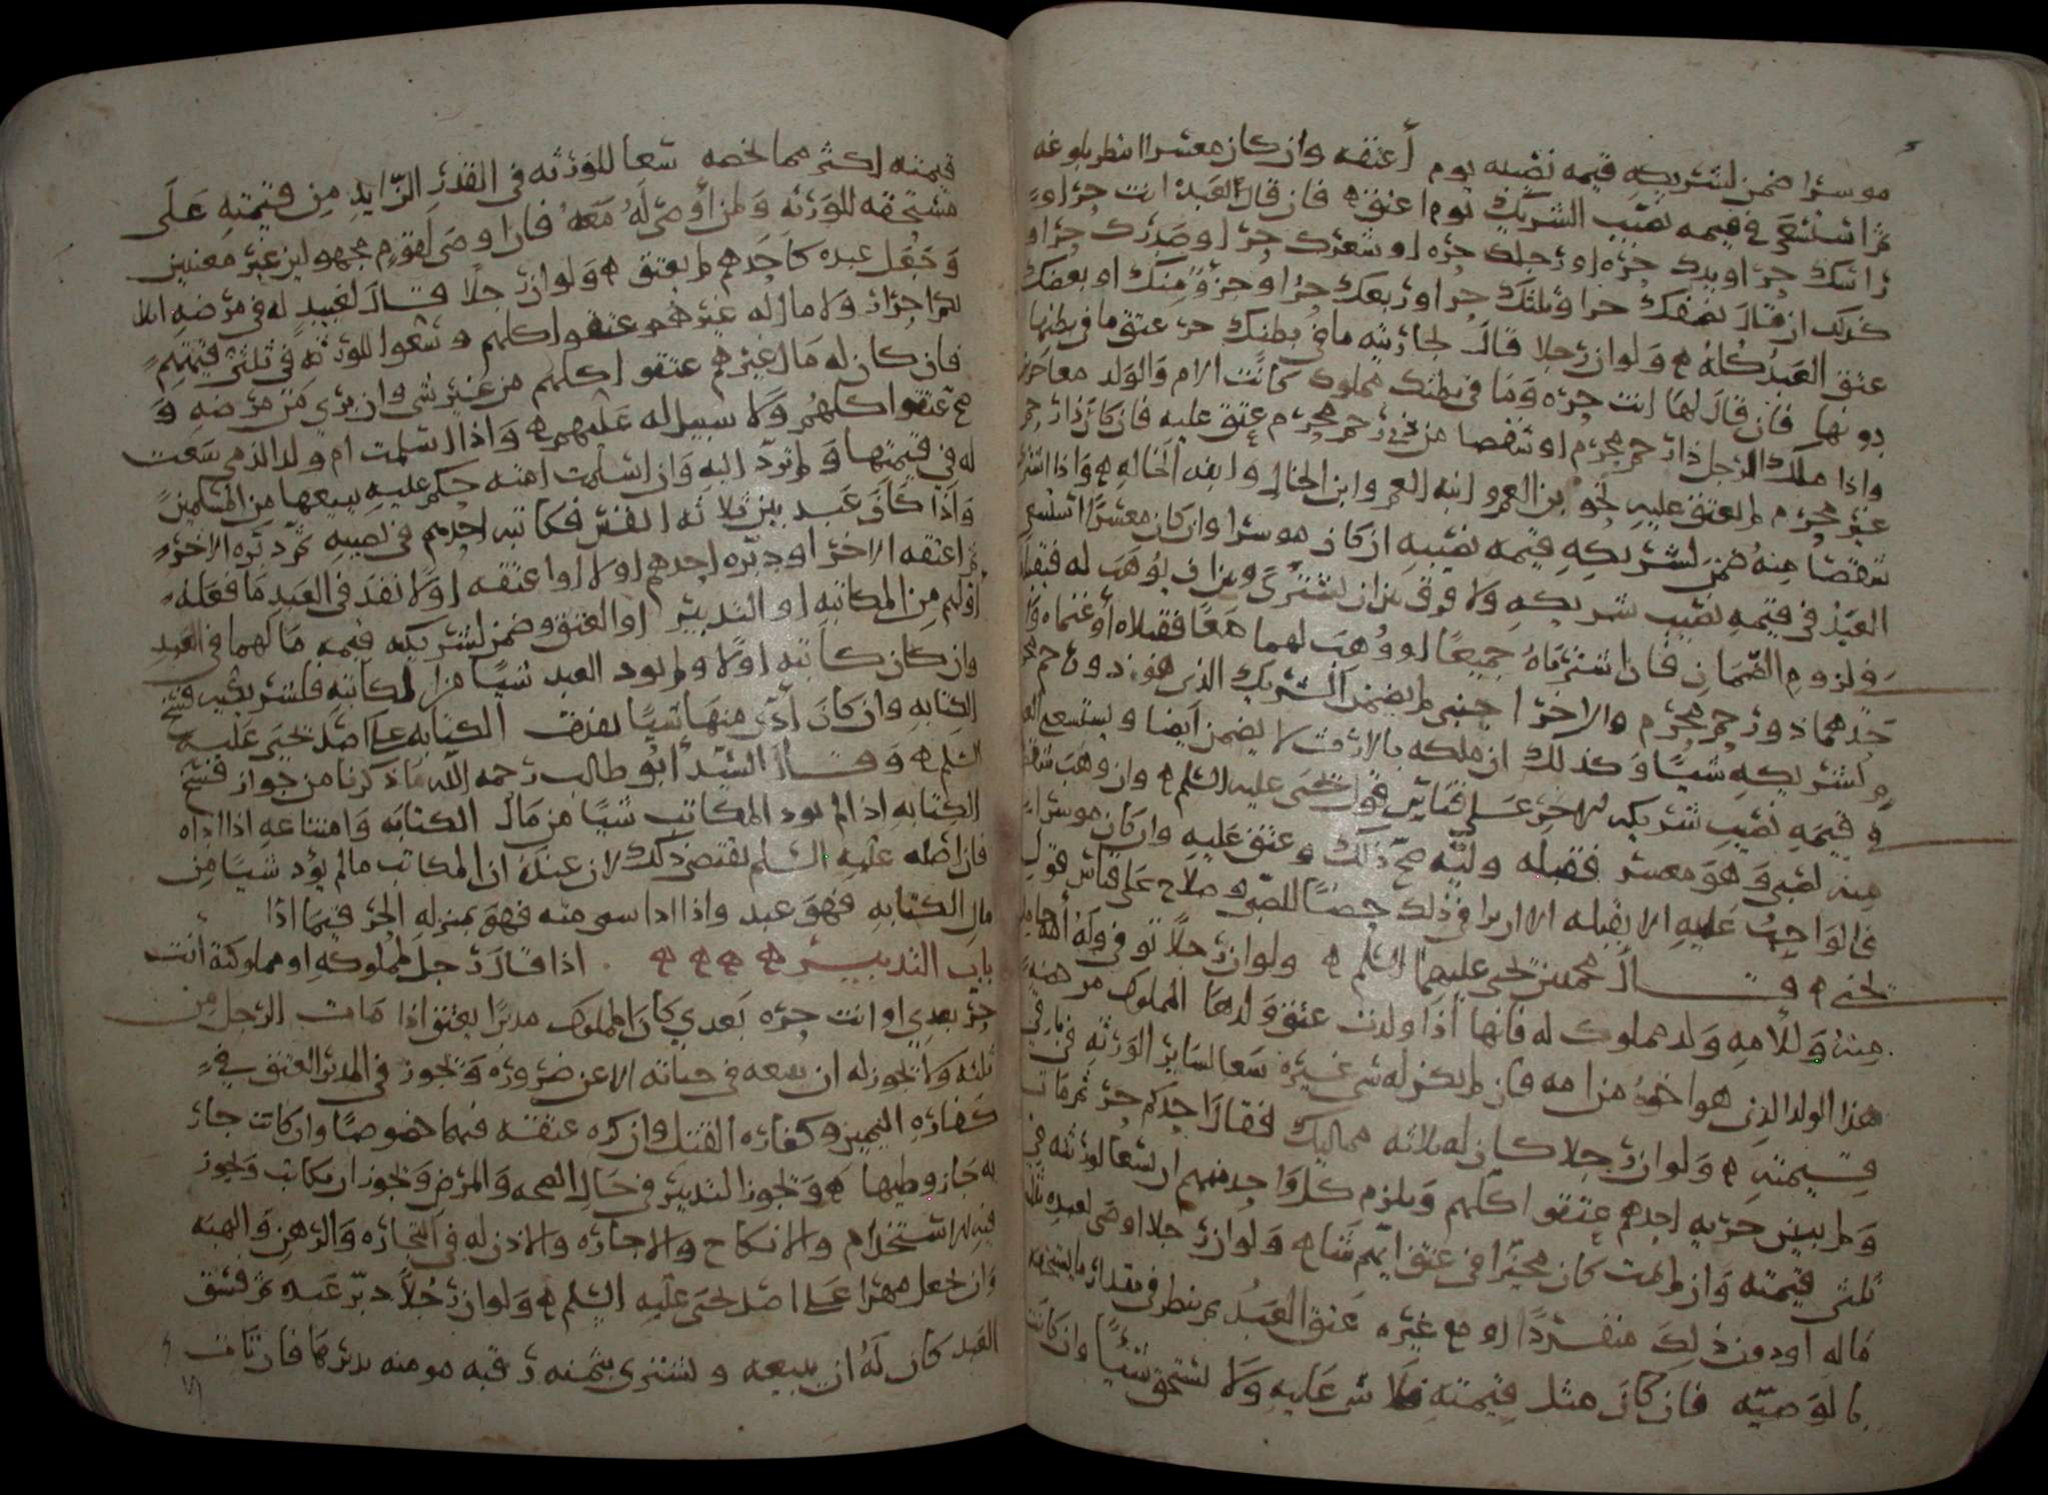 موسرا ضمن لشريكه قيمه نصيبه يوم أعتقه وان كان معسرا انتظر بلوغه
ثم استسعى في قيمه نصيب الشريك يوم اعتق فان قال العبد انت حر او
راسك حر او يدك حره او رجلك حره او شعرك حر او صدرك حر او
كذلك ان قال نصفك حر او ثلثك حر او ربعك حر او جزؤ منك او بعضك
عتق العبد كله ولو ان رجلا قال لجاريته ما في بطنك حر عتق ما في بطنها
دونها فان قال لها انت حره وما في بطنك مملوك كانت الام والولد معا حرين
واذا ملك الرجل ذا رحم محرم او شقصا من ذي رحم محرم عتق عليه فان كان ذا رحم
غير محرم لم يعتق عليه نحو بن العم و ابنه العم وابن الخال وابنه الخاله واذا اشترى
شقصا منه ضمن لشريكه قيمه نصيبه ان كان موسرا وان كان معسرا استسعى
العبد في قيمه نصيب شريكه ولا فرق بين ان يشترى وبين ان يوهب له فيقبله
في لزوم الضمان فان اشترياه جميعا او وهب لهما معا فقبلاه أو غنماه وا
حدهما ذو رحم محرم والاخر اجنبي لم يضمن الشريك الذي هو ذو رحم محرم
لشريكه شيا وكذلك ان ملكه بالارث لا يضمن أيضا ويستسعي العبد
في قيمه نصيب شريكه للاخر على قياس قول يحيى عليه السلم وان وهب شقصا
منه لصبي وهو معسر فقبله وليه صح ذلك وعتق عليه وان كان موسرا
فالواجب عليه الا يقبله الا ان يرا في ذلك حضا للصبي و صلاح على قياس قول
يحيى وقال محمد بن يحيى عليهما السلم ولو ان رجلا توفي وله أمه حامل
منه وللامه ولد مملوك له فانها اذا ولدت عتق ولدها المملوك من هذه
هذا الولد الذي هو اخوه من امه فان لم يكن له شي غيره سعا لساير الورثه في باقي
قيمته ولو ان رجلا كان له ثلاثه مماليك فقال احدكم حر ثم مات
ولم يبين حريه احدهم عتقوا كلهم ويلزم كل واحد منهم ان يسعا لورثته في
ثلثي قيمته وان لم يمت كان مخيرا في عتق ايهم شا ولو ان رجلا اوصى لعبده بثلث
ماله او دون ذلك منفردا او مع غيره عتق العبد ثم ينظر في مقدار ما يستحقه
بالوصيه فان كان مثل قيمته فلا شي عليه ولا يستحق شيا وان كانت
قيمته اكثر مما يخصه سعا للورثه في القدر الزايد من قيمته على
مستحقه للورثه ولمن أوصى له معه فان اوصى لقوم مجهولين غير معينين
وجعل عبده كاحدهم لم يعتق ولو ان رجلا قال لعبيد له في مرضه انتم
احرار ولا مال له غيرهم عتقوا كلهم وسعوا للورثه في ثلثي قيمتهم
فان كان له مال غيرهم عتقوا كلهم من غير شي وان بري من مرضه و
صح عتقوا كلهم ولا سبيل له عليهم واذا اسلمت ام ولد الذمي سعت
له في قيمتها ولم ترد اليه وان اسلمت امته حكم عليه ببيعها من المسلمين
واذا كان عبد بين ثلاثه انفس فكاتبه احدهم في نصيبه ثم دبره الاخر
ثم اعتقه الاخر او دبره احدهم اولا او اعتقه اولا نفذ في العبد ما فعله
أولهم من المكاتبه او التدبير او العتق وضمن لشريكيه قيمه مالهما في العبد
وان كان كاتبه اولا ولم يود العبد شيا من المكاتبه فلشريكيه فسخ
الكتابه وان كان أدى منها شيا نفذت الكتابه على اصل يحيى عليه
السلم وقال السيد أبو طالب رحمه الله ما ذكرنا من جواز فسخ
الكتابه اذا لم يود المكاتب شيا من مال الكتابه وامتناعه اذا اداه
فان اصله عليه السلم يقتضي ذلك لان عنده ان المكاتب مالم يؤد شيا من
مال الكتابه فهو عبد واذا ادا شي منه فهو بمنزله الحر فيما ادا
باب التدبير اذا قال رجل لمملوكه او مملوكته أنت
حر بعدي او انت حره بعدي كان المملوك مدبرا يعتق اذا مات الرجل من
ثلثه ولا يجوز له ان يبيعه في حياته الا عن ضروره ويجوز في المدبر العتق في
كفاره اليمين وكفاره القتل وان كره عتقه فيهما خصوصا وان كانت جار
يه جاز وطيها ويجوز التدبير في حال الصحه والمرض ويجوز ان يكاتب ويجوز
فيه الاستخدام والانكاح والاجاره والاذن له في التجاره والرهن والهبه
وان جعل مهرا على اصل يحيى عليه السلم ولو ان رجلا دبر عبده ثم فسق
العبد كان له ان يبيعه ويشتري بثمنه رقبه مومنه يدبرها فان تاب